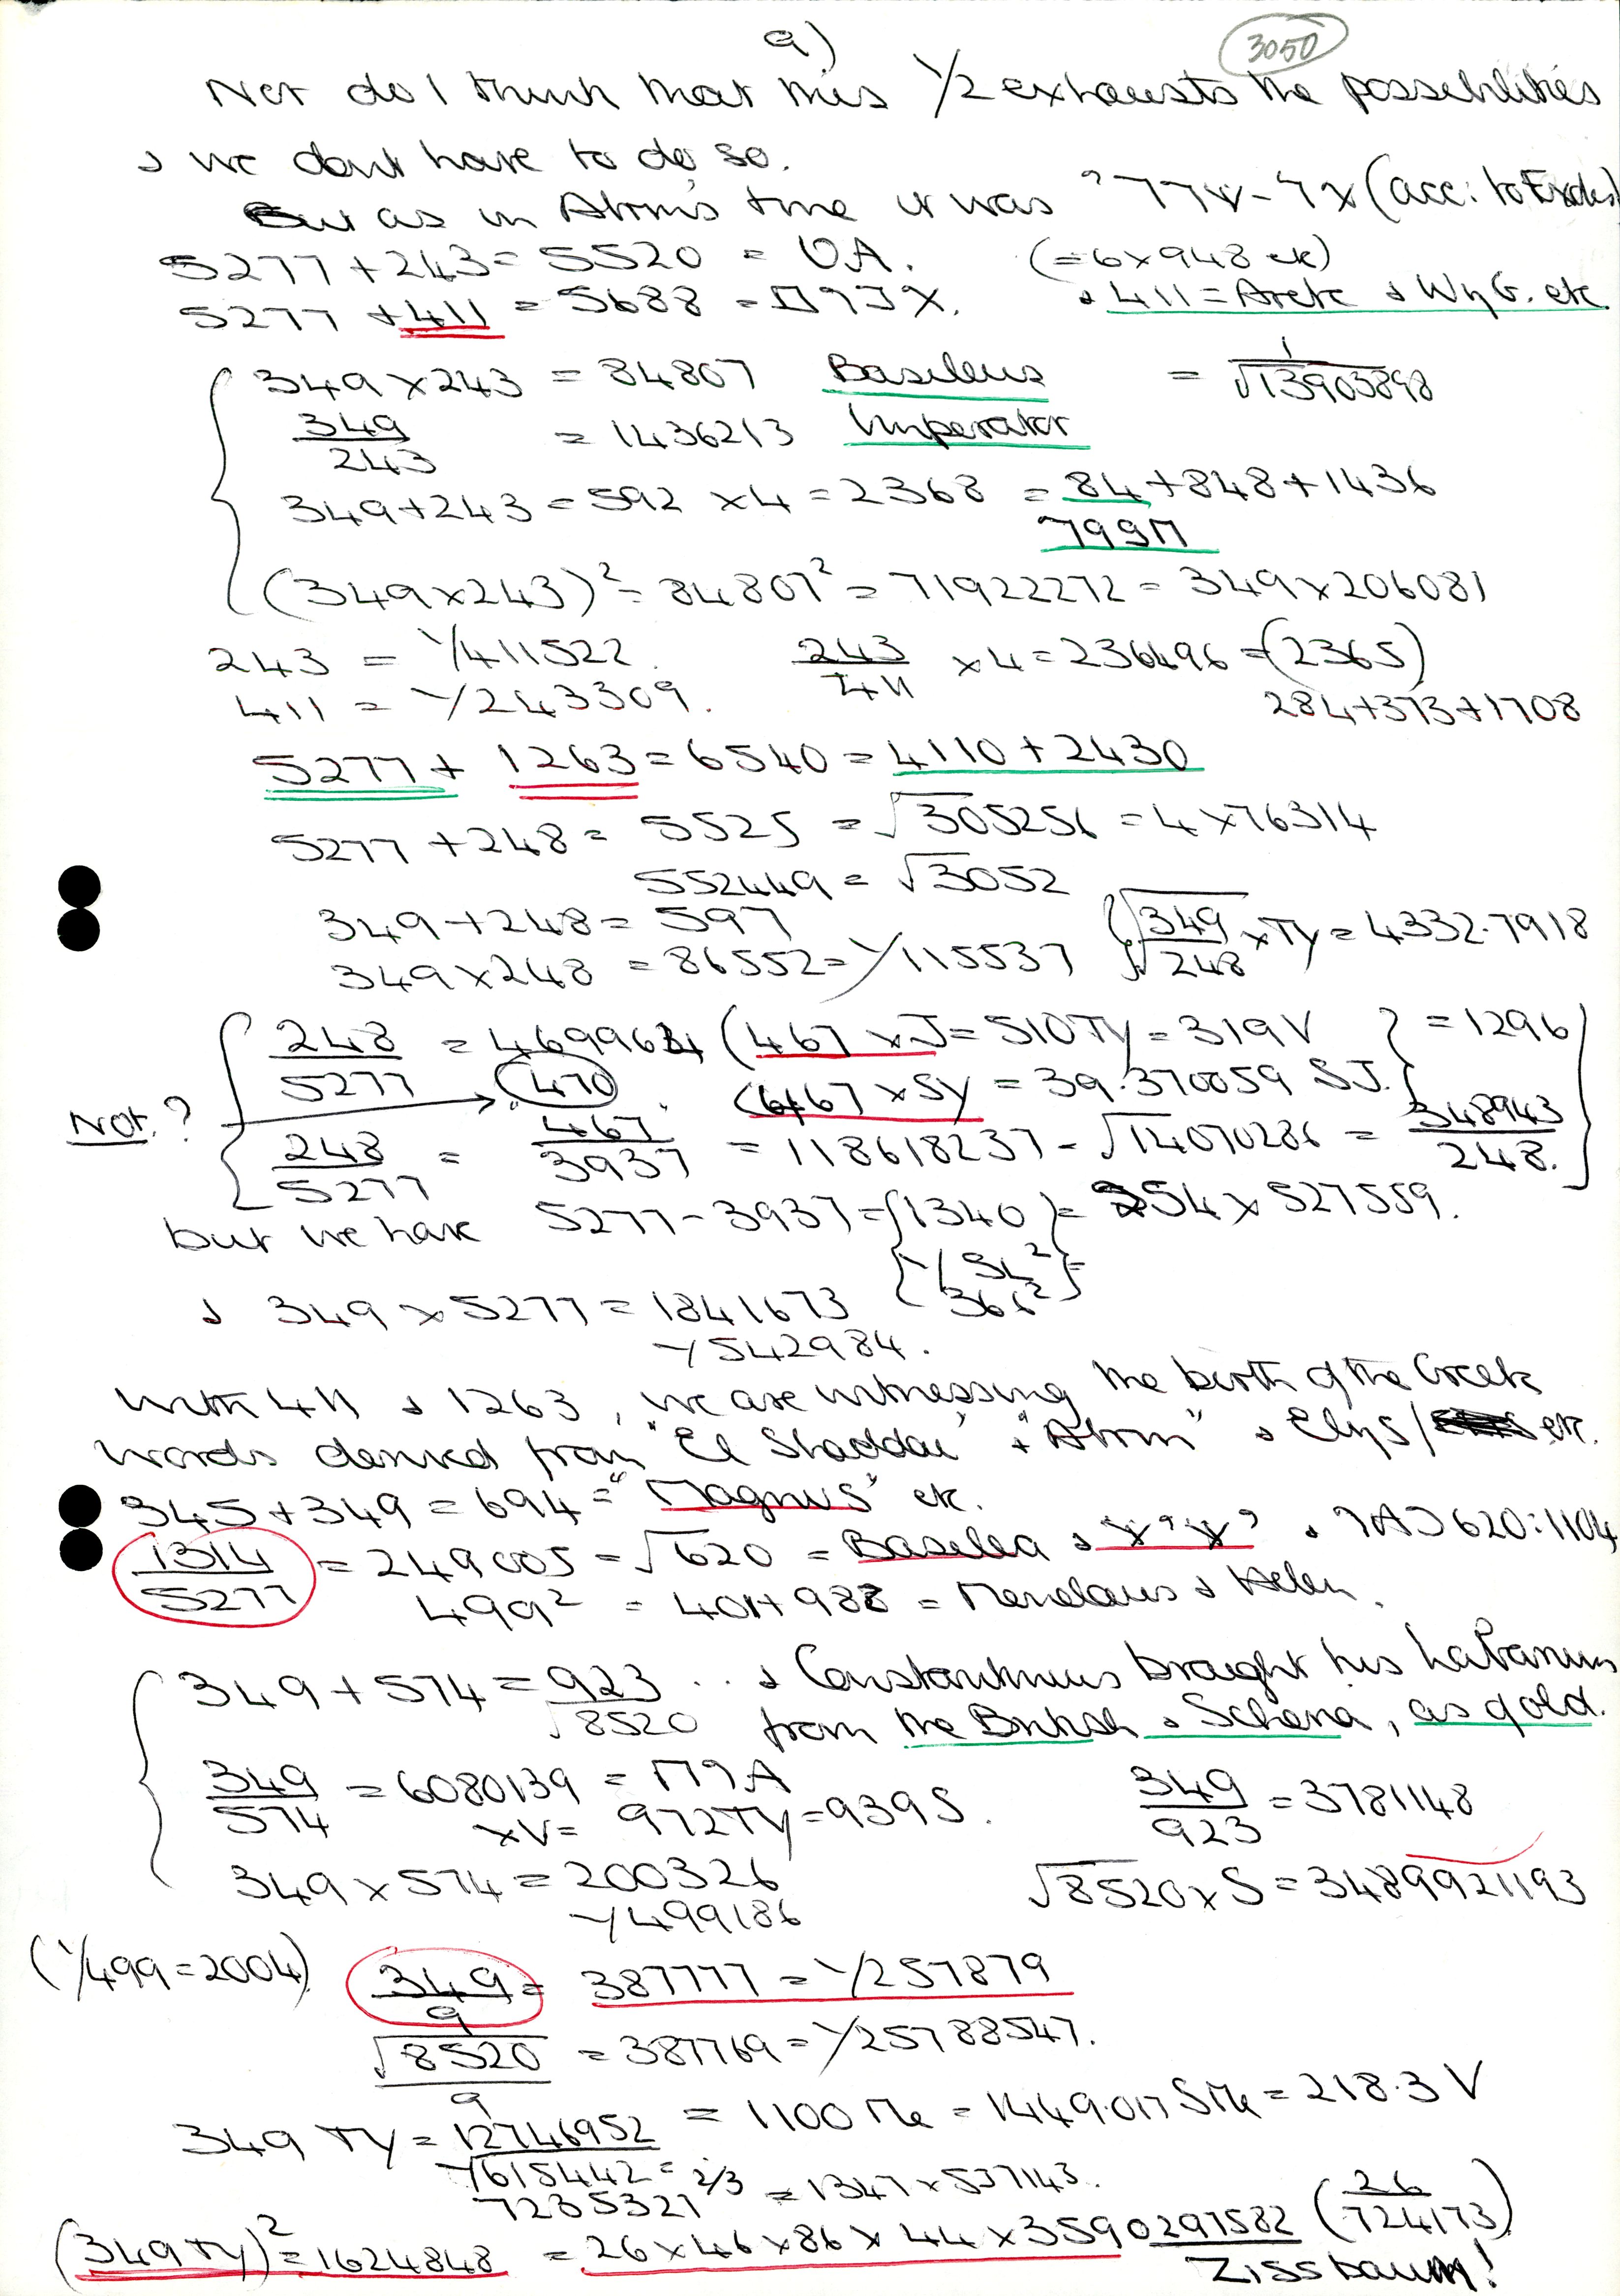 9)
3050
Nor do I think that this 1/2 exhausts the possibilities
& we dont have to do so.
But as in Abram's time it was (acc: to Exodus)
5277 + 243 = 5520 = UA. (= 6 x 948 etc)
5277 + 411 = 5688 = & 411 = etc.
349 x 243 = 84807 Basileus = 1/√13903898
349/243 = 1436213 Imperator
349 + 243 = 592 x 4 = 2368 = 84 + 848 + 1436
(349 x 243)² = 84807² = 71922272 = 349 x 206081
243 = 1/411522. 243/411 x 4 = 236496 = (2365)
411 = 1/243309. 284 + 373 + 1708
5277 + 1263 = 6540 = 4110 + 2430
5277 + 248 = 5525 = √305256 = 4 x 76314
552449 = √3052
349 + 248 = 597
349 x 248 = 86552 = 1/115537 √349/√248 x Ty = 4332.7918
248/5277 = (467 x J = 510 Ty = 319 V } = 1296
470 (467 x Sy = 39.370059 SJ.
Not.?
248/5277 = 467/3937 = 118618237 = √14070286 = 348943/248.
but we have 5277 - 3937 = (1340) = 254 x 527559.
& 349 x 5277 = 1841673
1/542984.
With 411 & 1263, we are witnessing the birth of the Greek
words derived from "El Shaddai" & "Abram" & Elys/ etc.
345 + 349 = 694 = "Magnus" etc.
1314/5277 = 249005 = √620 = Basilea & 620:1104
499² = = Menelaus & Helen.
349 + 574 = 923 .. & Constantinus brought his Labarum
√8520 from the British & Schena, as gold.
349/574 = 6080139 = 349/923 = 3781148
x V = 972 Ty = 939 S.
349 x 574 = 200326 √8520 x S = 3489921193
1/499186
(1/499 = 2004) 349/9 = 387777 = 1/257879
√8520/9 = 387769 = 1/25788547.
349 Ty = 12746952 = 1100 Me = 1449.017 SMe = 218.3 V
1/615442 = 2/3
7235321 = 1347 x 537143.
(349 Ty)² = 1624848 = 26 x 46 x 86 x 44 x 3590297582 (26/724173)
Zissbaum!